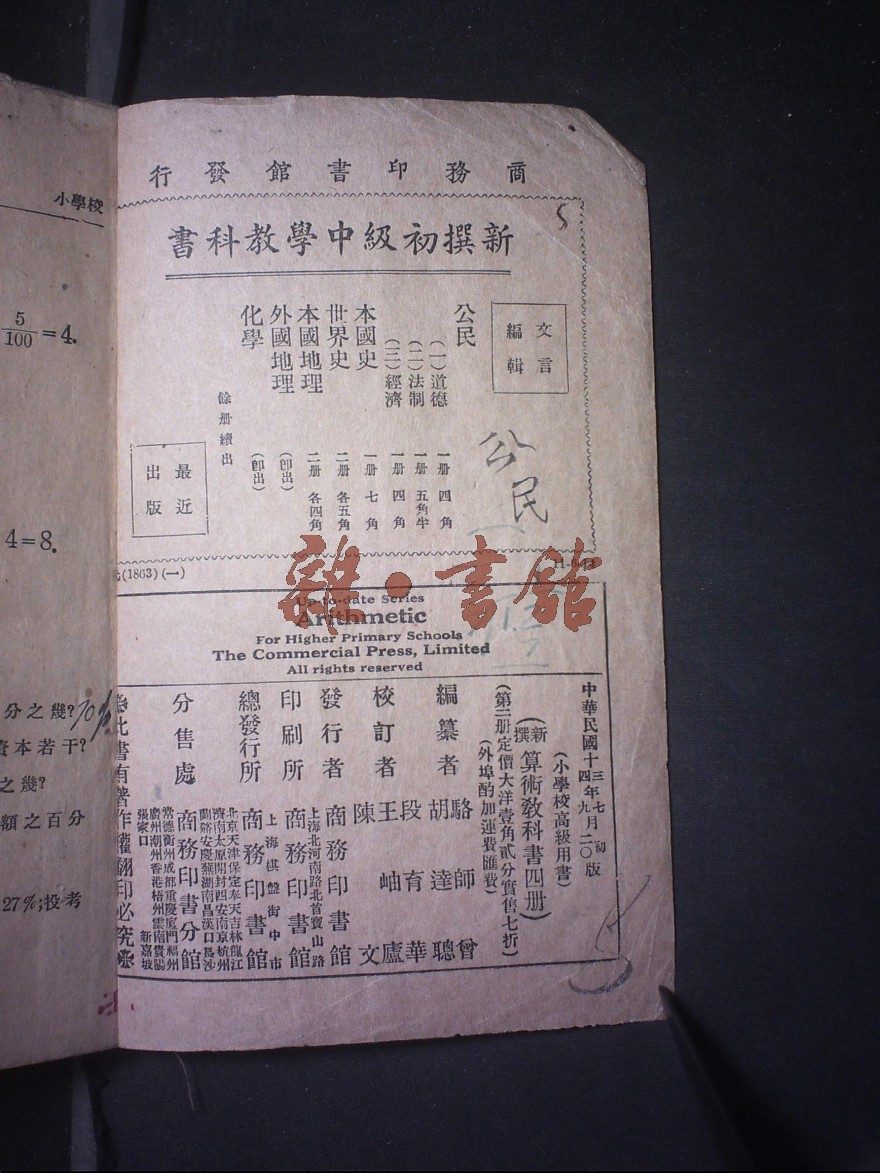 小學校
5/100=4.
4=8.
分之幾?
資本若干?
之幾?
額之百分
27%;投考
商務印書館發行
新撰初級中學教科書
文言
編輯
公民
(一)道德 一册 四角
(二)法制 一册 五角半
(三)經濟 一册 四角
本國史 一册 七角
世界史 二册 各五角
本國地理 二册 各四角
外國地理 (卽出)
化學 (卽出)
餘册續出
最近
出版
公民
(1863)(一)
雜·書館
Up-to-date Series
Arithmetic
For Higher Primary Schools
The Commercial Press, Limited
All rights reserved
中華民國十三年七月初版
十四年九月二〇版
(小學校高級用書)
(新撰算術教科書四册)
(第三册定價大洋壹角貳分實售七折)
(外埠酌加運費匯費)
編纂者 駱師曾
胡達聰
校訂者 段育華
王岫廬
陳文
發行者 商務印書館
印刷所 上海北河南路北首寶山路
商務印書館
總發行所 上海棋盤街中市
商務印書館
分售處 北京天津保定奉天吉林龍江
濟南太原開封西安南京杭州
蘭谿安慶蕪湖南昌漢口長沙
商務印書分館
常德衡州成都重慶廈門福州
廣州潮州香港梧州雲南貴陽
張家口 新嘉坡
此書有著作權翻印必究